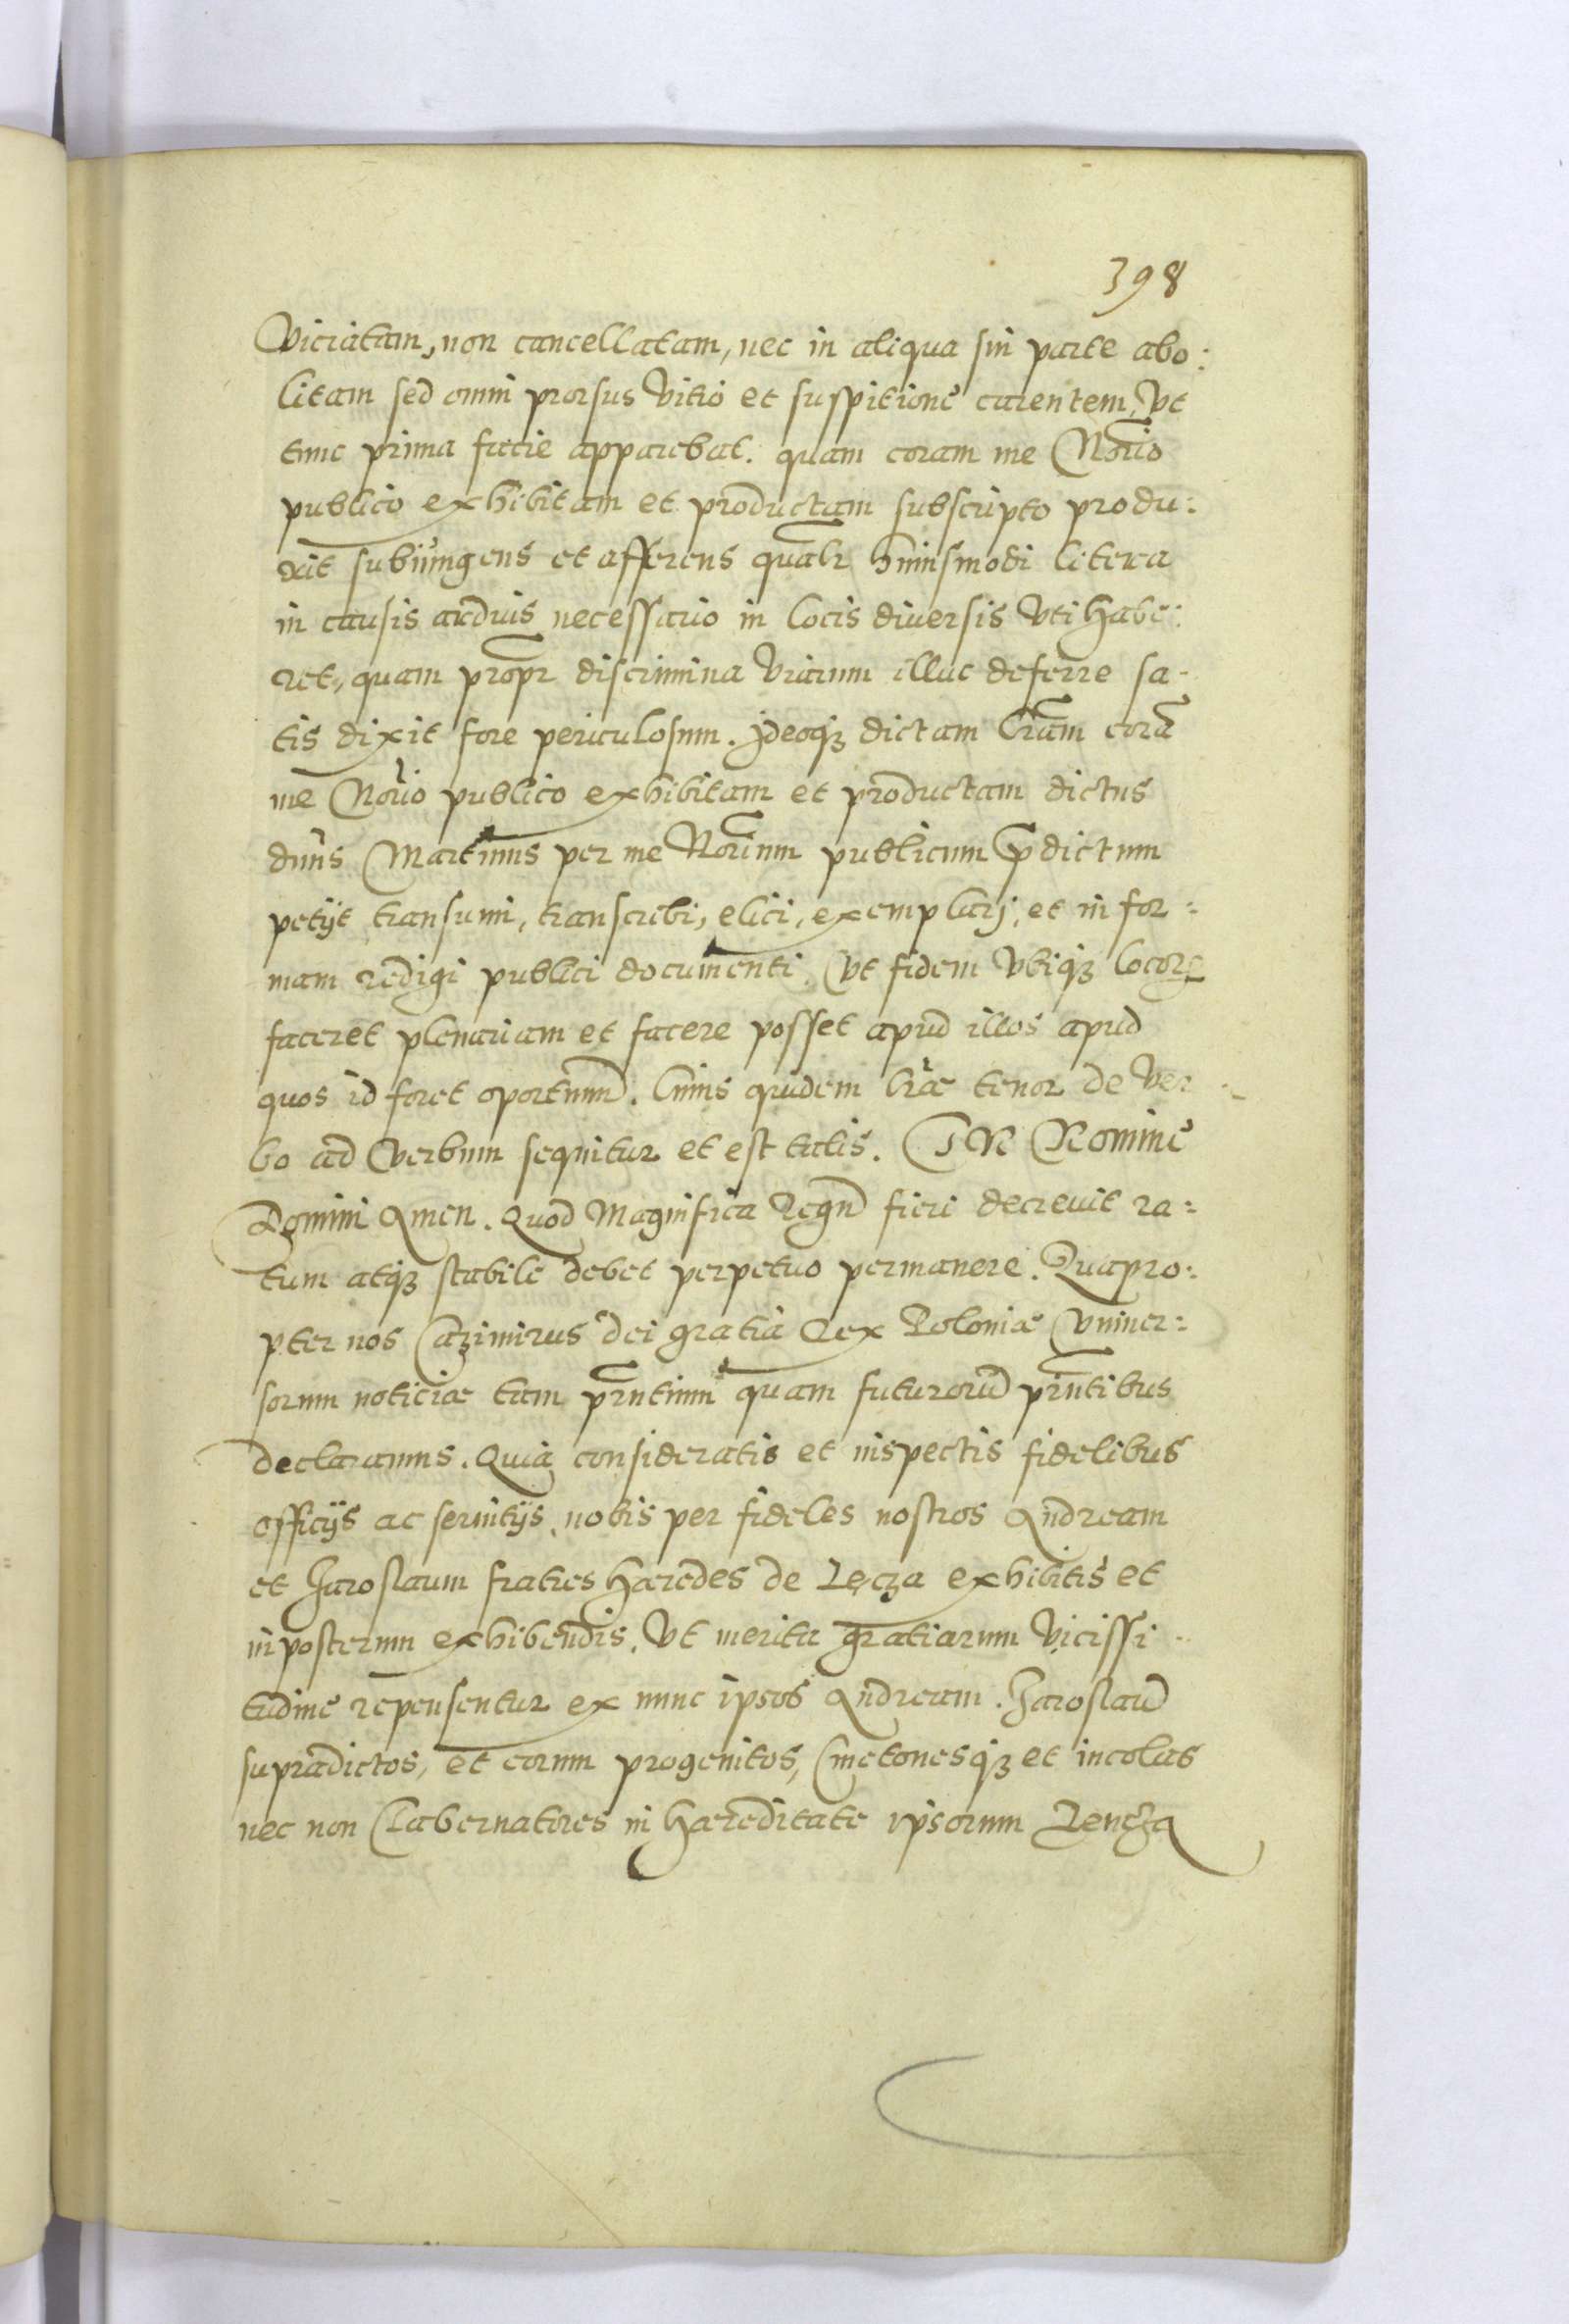 398
Viciatam, non cancellatam, nec in aliqua sui parte abo:
litam sed omni prorsus vitio et suspitione carentem, Vt
tunc prima facie apparebat. quam coram me Norio
publico exhibitam et productam subscripto produ:
xit subiungens et asserens qualr huiusmodi litera
in causis arduis necessario in locis diuersis Vti habe:
ret, quam propr discrimina viarum illuc deferre sa-
tis dixit fore periculosum. Ideoqz dictam lram corã
me Norio publico exhibitam et productam dictus
dnns Martinus per me Norium publicum pdictum
petijt transumi, transcribi, elici, exemplarj, et in for:
mam redigi publici documenti. Vt fidem Vbiqz locorꝫ
faceret plenariam et facere posset apud illos apud
quos id foret oportunũ. Cuius quidem lrae tenor de Ver-
bo ad Verbum sequitur et est talis. IN Nomine
Domini Amen. Quod Magnifica Regũ fieri decreuit ra:
tum atqz stabile debet perpetuo permanere. Quapro:
pter nos Cazimirus dei gratia Rex Poloniae Vniuer:
sorum noticiae tam prntium quam futurorũ prntibus
declaramus. Quia consideratis et inspectis fidelibus
officijs ac seruitijs, nobis per fideles nostros Andream
et Jaroslaum fratres haeredes de Lęcza exhibitis et
inposterum exhibendis. Vt merita gratiarum Vicissi-
tudine repensentur ex nunc ipsos Andream. Jaroslaũ
supradictos, et eorum progenitos, Cmetonesqz et incolas
nec non Tabernatores in haereditate ipsorum Lencza